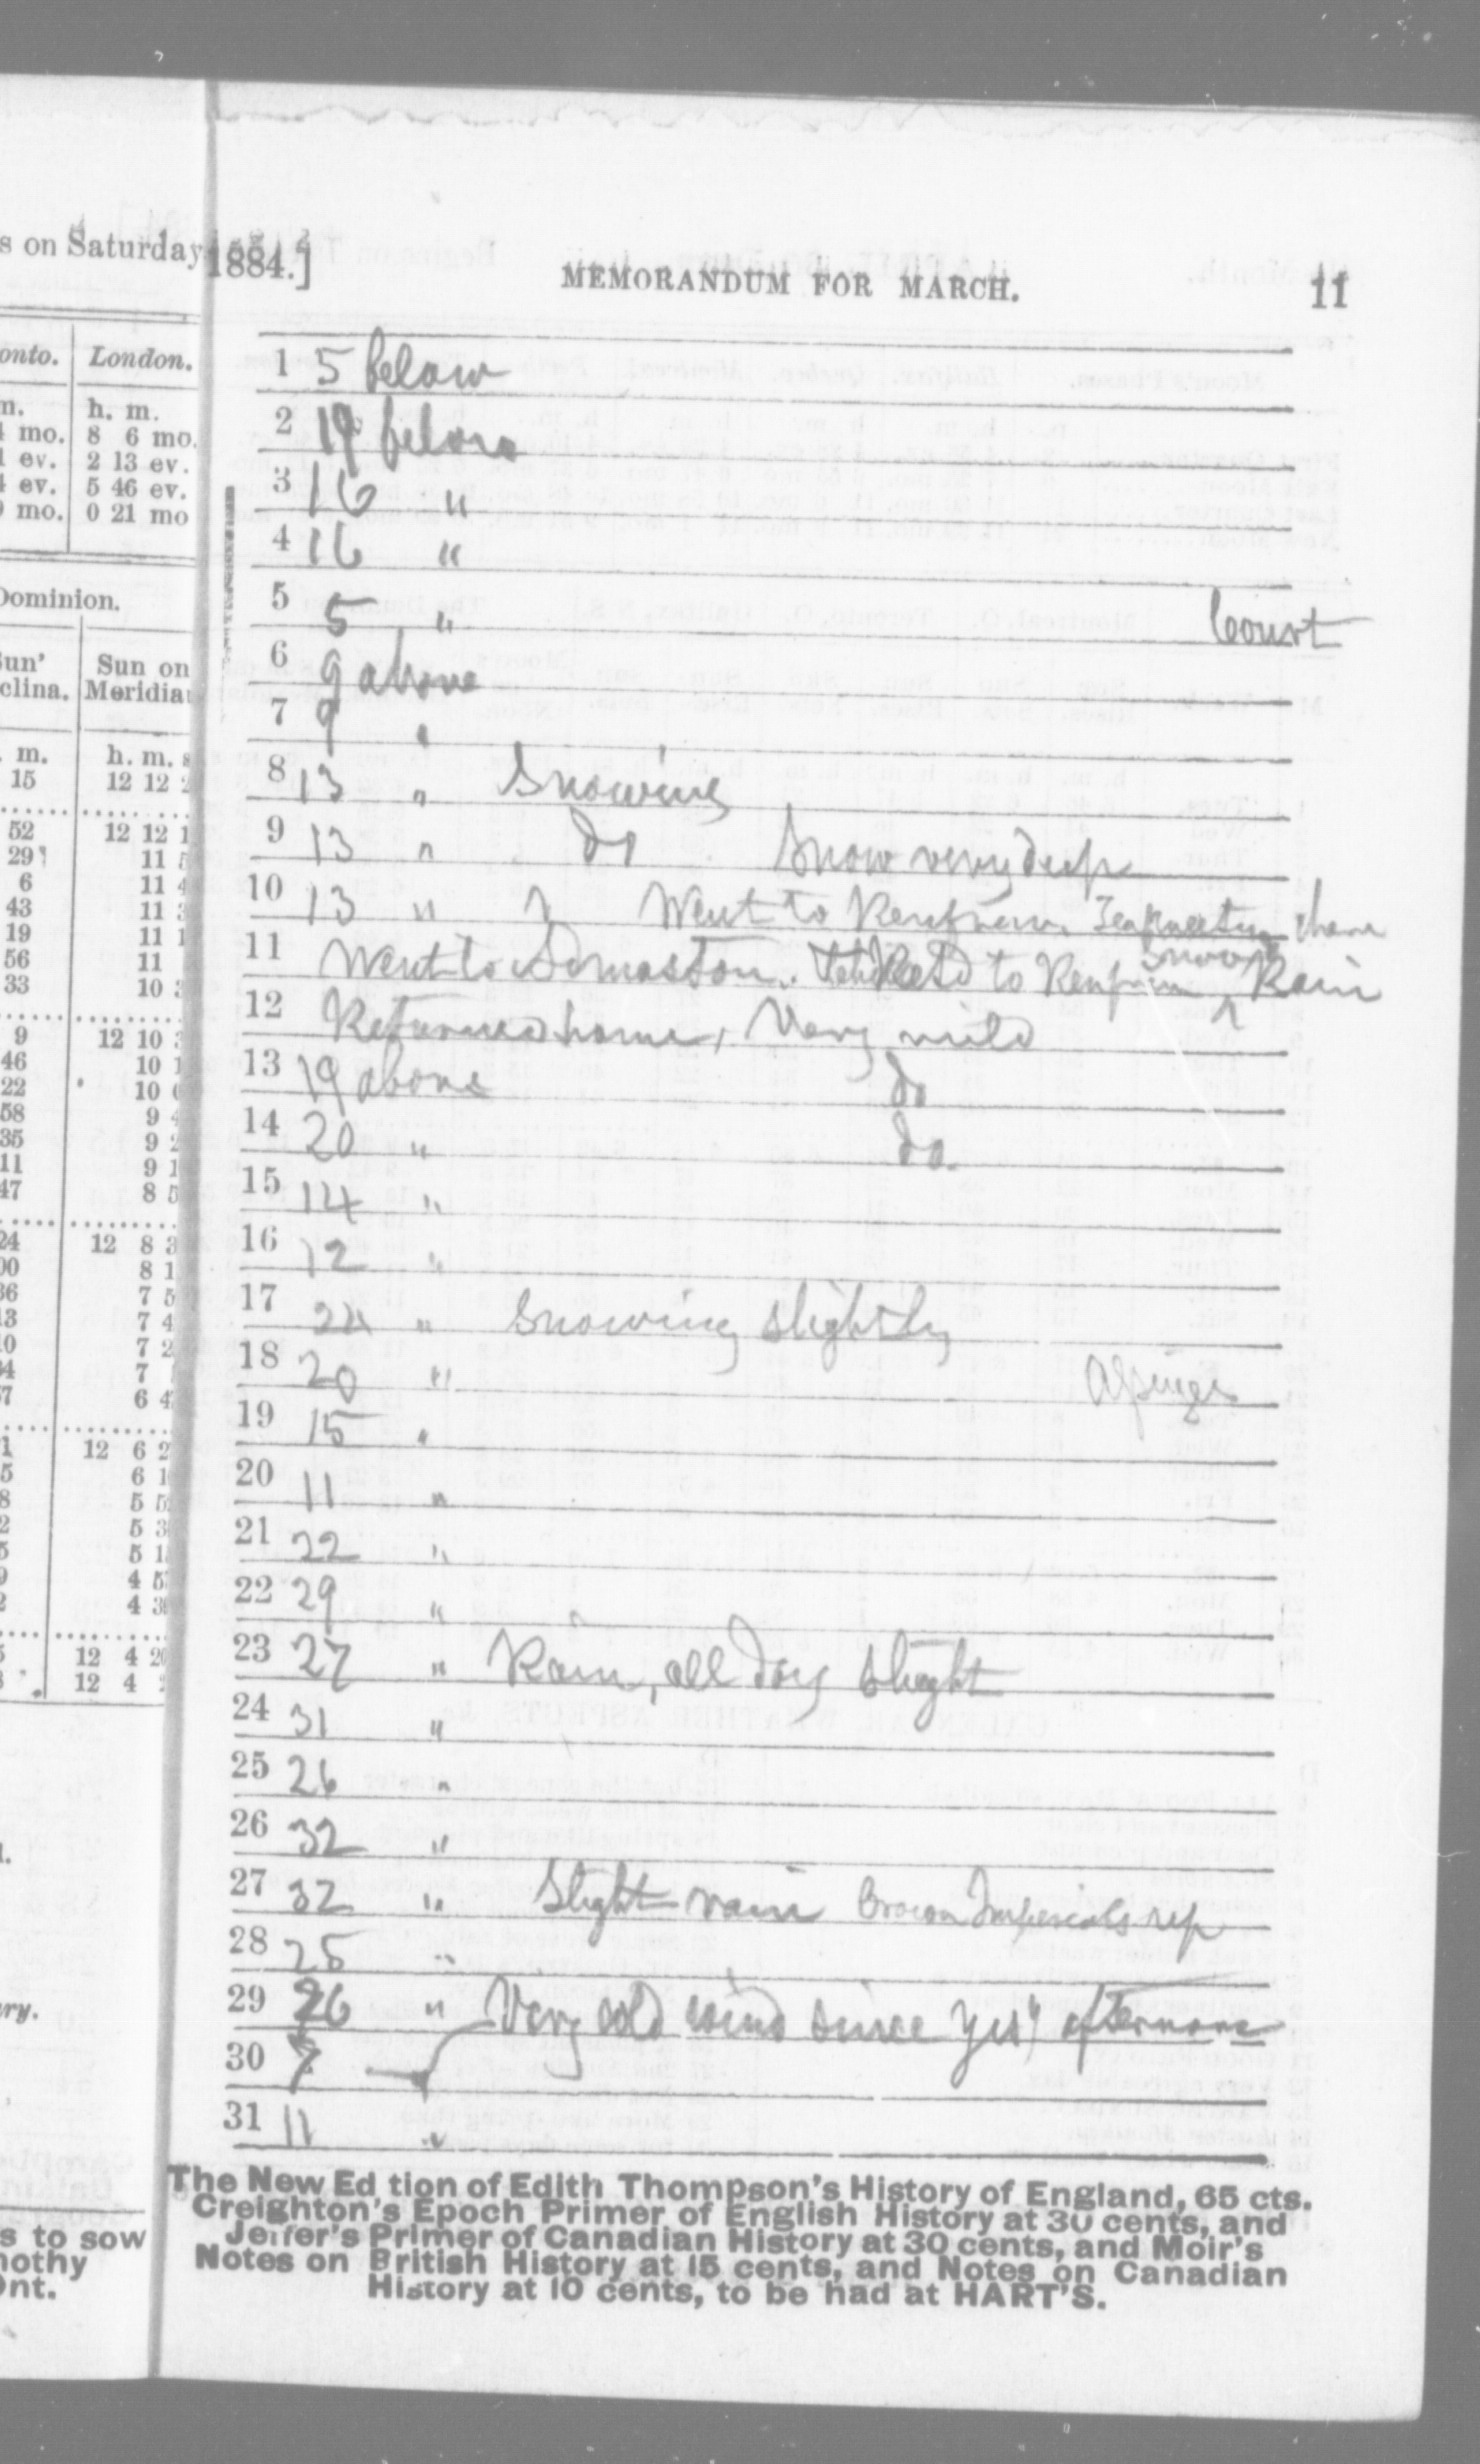 s on Saturday
onto. London.
m. h. m.
mo. 8 6 mo.
ev. 2 13 ev.
ev. 5 46 ev.
mo. 0 21 mo
Dominion.
Sun' Sun on
clina. Meridian
m. h. m. s
15 12 12 2
52 12 12 1
29 11 5
6 11 4
43 11 3
19 11 1
56 11
33 10 3
9 12 10 3
46 10 1
22 10 0
58 9 4
35 9 2
11 9 1
47 8 5
24 12 8 3
00 8 1
36 7 5
13 7 4
10 7 2
34 7
57 6 4
1 12 6 2
5 6 1
8 5 5
2 5 3
5 5 1
9 4 5
2 4 3
5 12 4 20
12 4 2
ary.
s to sow
nothy
Ont.
1884.] MEMORANDUM FOR MARCH. 11
1 5 below
2 19 below
3 16 "
4 16 "
5 5 " Court
6 9 above
7 9 "
8 13 " Snowing
9 13 " do Snow very deep
10 13 " " Went to Renfrew
11 Went to to Renfrew snow & Rain
12 Returned home, Very mild
13 19 above do
14 20 " do.
15 14 "
16 12 "
17 24 " Snowing slightly
18 20 "
19 15 "
20 11 "
21 22 "
22 29 "
23 27 " Rain, all day slight
24 31 "
25 26 "
26 32 "
27 32 " Slight rain Brown Imperials rep
28 25 "
29 26 " Very cold wind since yes'y afternoon
30 7
31 11 "
The New Ed tion of Edith Thompson's History of England, 65 cts.
Creighton's Epoch Primer of English History at 30 cents, and
Jeffer's Primer of Canadian History at 30 cents, and Moir's
Notes on British History at 15 cents, and Notes on Canadian
History at 10 cents, to be had at HART'S.